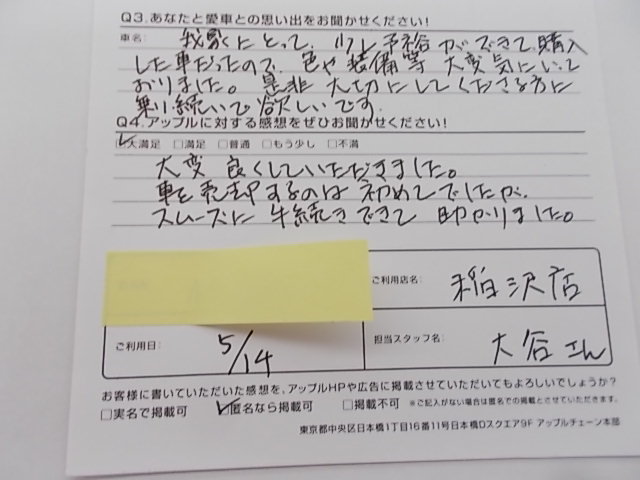 Q3.あなたと愛車との思い出をお聞かせください!
車名: 我家にとって、少し予裕ができて、購入
した車だったので、色や装備等 大変気にいって
おりました。是非 大切にしてくださる方に
乗り続いで欲しいです。
Q4.アップルに対する感想をぜひお聞かせください!
☑大満足 □満足 □普通 □もう少し □不満
大変 良くしていただきました。
車を売却するのは 初めてでしたが、
スムーズに 手続きできて 助かりました。
ご利用店名: 稲沢店
ご利用日: 5/14 担当スタッフ名: 大谷さん
お客様に書いていただいた感想を、アップルHPや広告に掲載させていただいてもよろしいでしょうか?
□実名で掲載可 ☑匿名なら掲載可 □掲載不可 ※ご記入がない場合は匿名での掲載とさせていただきます。
東京都中央区日本橋1丁目16番11号日本橋Dスクエア9F アップルチェーン本部